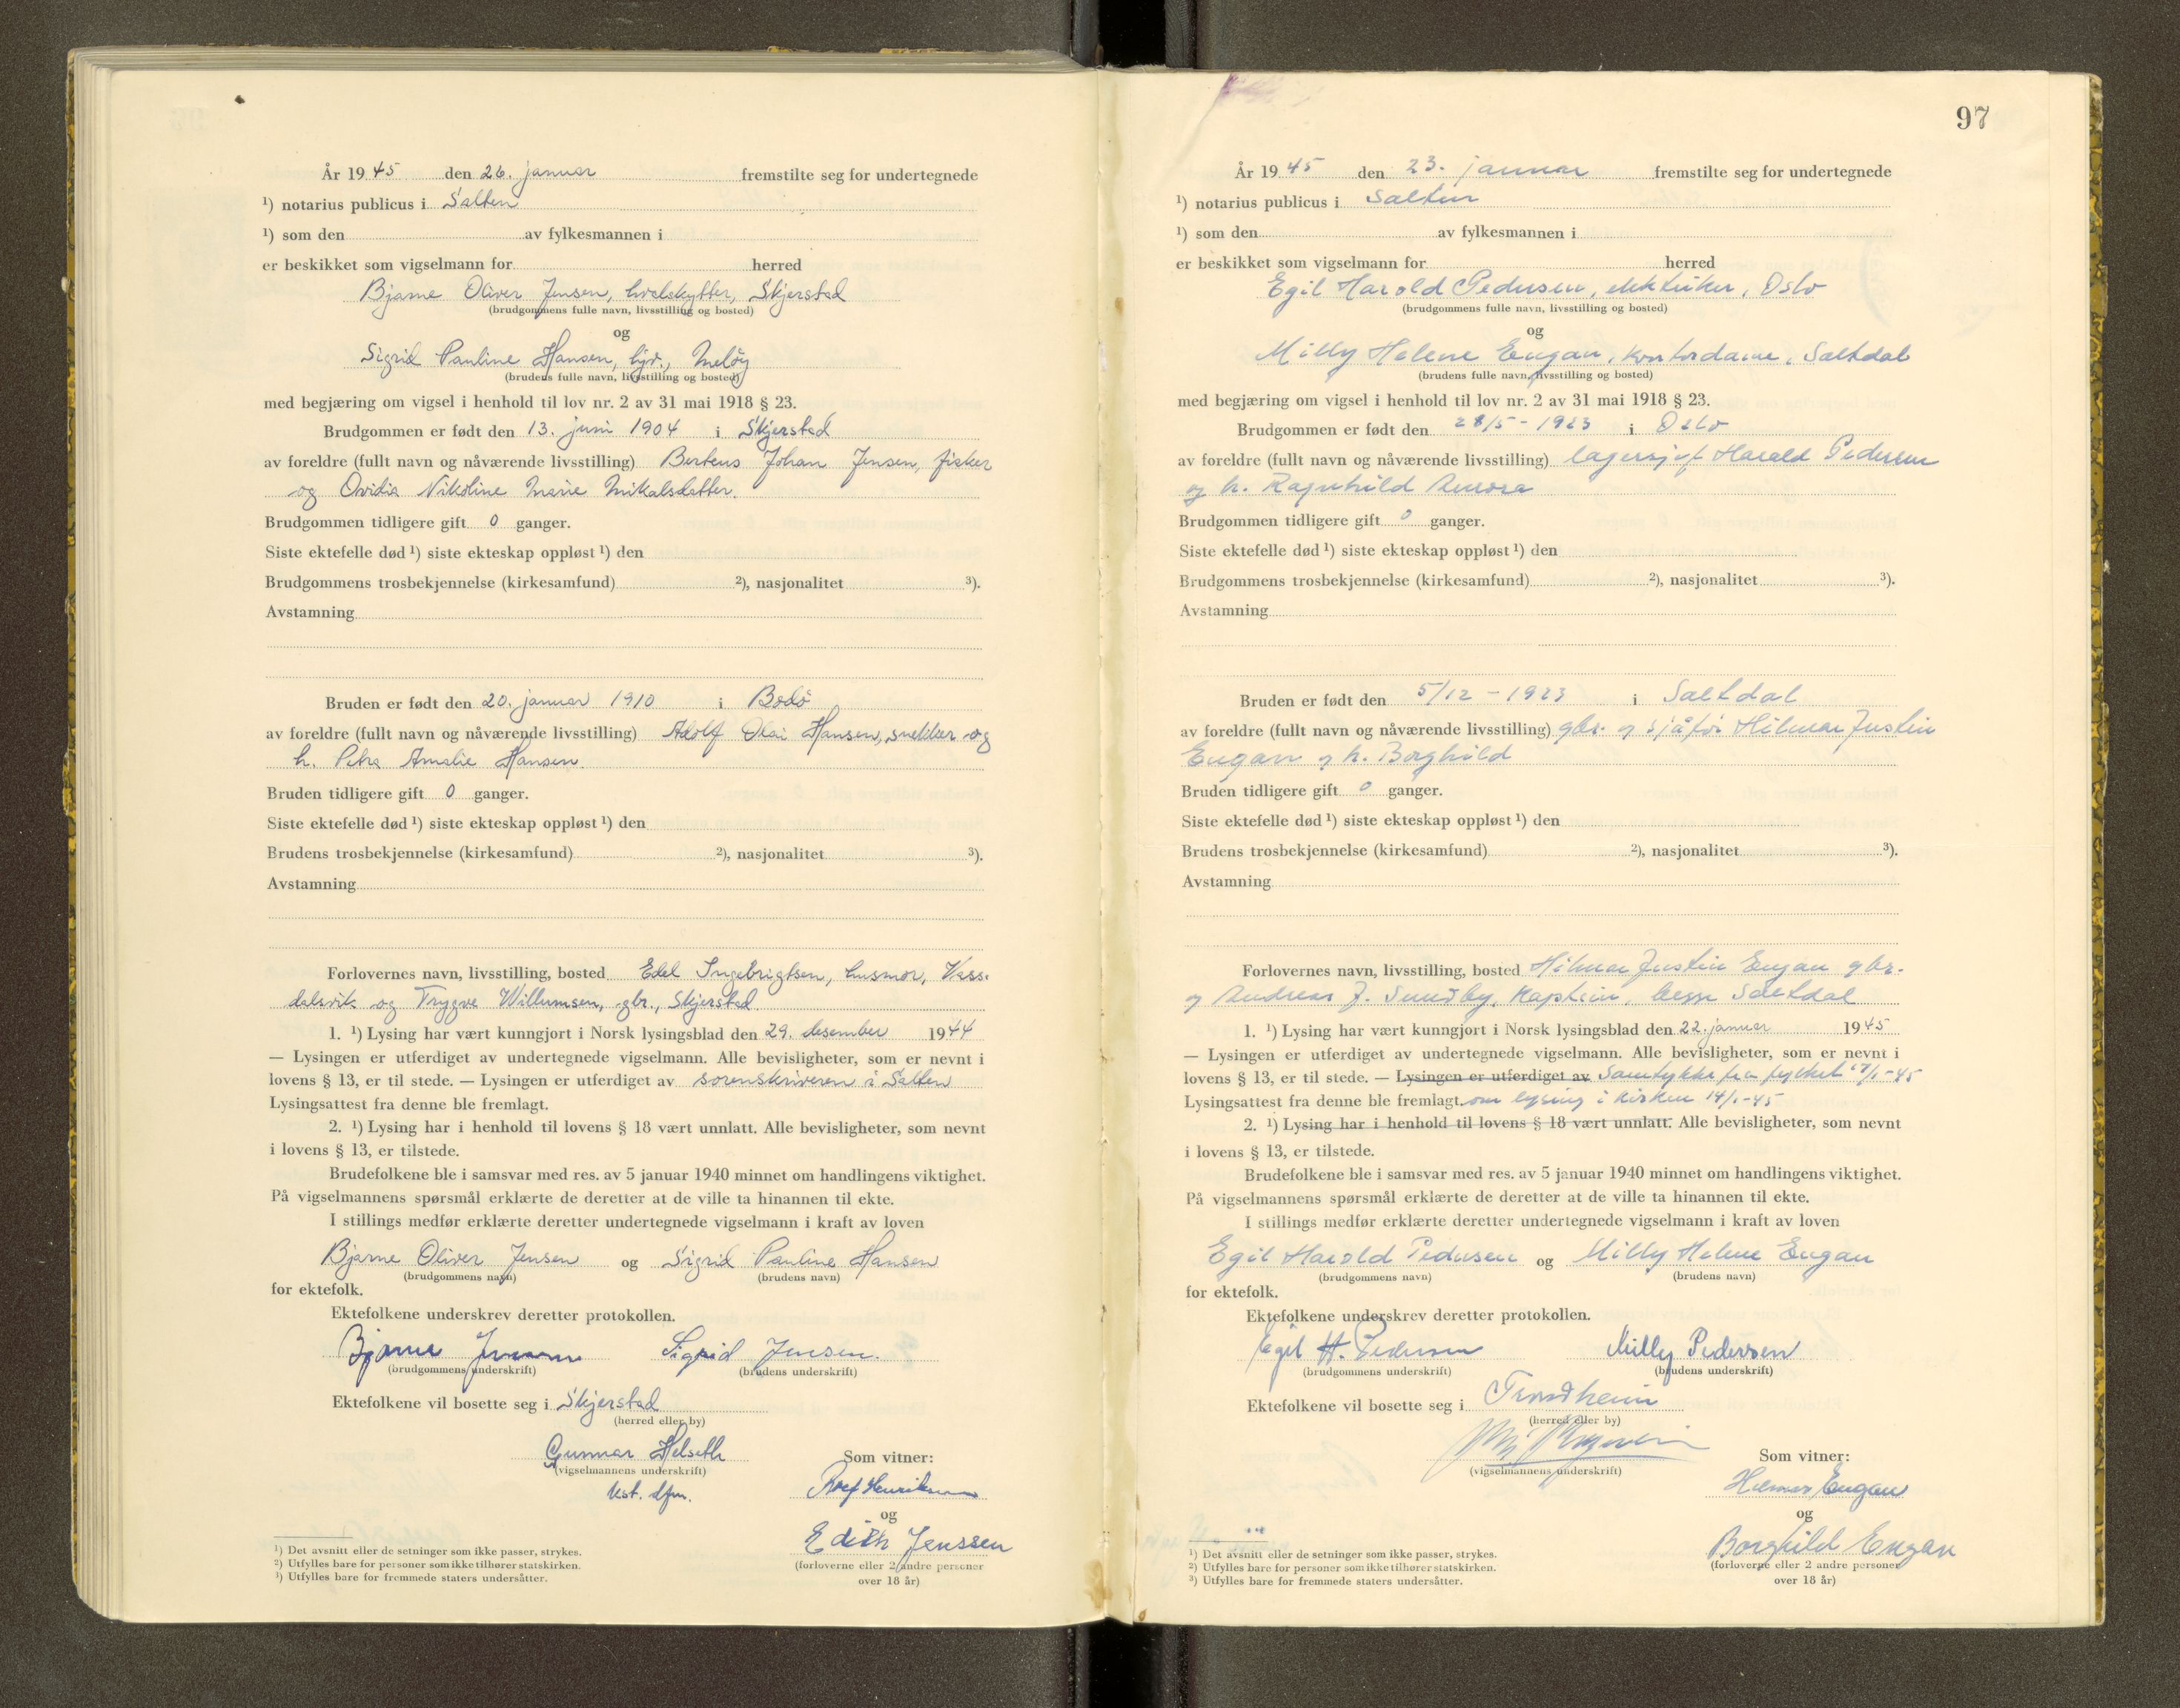 År 1945 den 26. januar fremstilte seg for undertegnede
¹) notarius publicus i Salten
¹) som den av fylkesmannen i
er beskikket som vigselmann for herred
Bjarne Oliver Jensen, hvalskytter, Skjerstad
(brudgommens fulle navn, livsstilling og bosted)
og
Sigrid Pauline Hansen, hjv., Meløy
(brudens fulle navn, livsstilling og bosted)
med begjæring om vigsel i henhold til lov nr. 2 av 31 mai 1918 § 23.
Brudgommen er født den 13. juni 1904 i Skjerstad
av foreldre (fullt navn og nåværende livsstilling) Bertens Johan Jensen, fisker
og Ovidia Nikoline Marie Mikalsdatter.
Brudgommen tidligere gift 0 ganger.
Siste ektefelle død ¹) siste ekteskap oppløst ¹) den
Brudgommens trosbekjennelse (kirkesamfund) ²), nasjonalitet ³).
Avstamning
Bruden er født den 20. januar 1910 i Bodø
av foreldre (fullt navn og nåværende livsstilling) Adolf Olai Hansen, snekker og
h. Petra Amalie Hansen.
Bruden tidligere gift 0 ganger.
Siste ektefelle død ¹) siste ekteskap oppløst ¹) den
Brudens trosbekjennelse (kirkesamfund) ²), nasjonalitet ³).
Avstamning
Forlovernes navn, livsstilling, bosted Edel Ingebrigtsen, husmor, Vass-
dalsvik og Trygve Willumsen, gbr., Skjerstad
1. ¹) Lysing har vært kunngjort i Norsk lysingsblad den 29. desember 1944
— Lysingen er utferdiget av undertegnede vigselmann. Alle bevisligheter, som er nevnt i
lovens § 13, er til stede. — Lysingen er utferdiget av sorenskriveren i Salten
Lysingsattest fra denne ble fremlagt.
2. ¹) Lysing har i henhold til lovens § 18 vært unnlatt. Alle bevisligheter, som nevnt
i lovens § 13, er tilstede.
Brudefolkene ble i samsvar med res. av 5 januar 1940 minnet om handlingens viktighet.
På vigselmannens spørsmål erklærte de deretter at de ville ta hinannen til ekte.
I stillings medfør erklærte deretter undertegnede vigselmann i kraft av loven
Bjarne Oliver Jensen og Sigrid Pauline Hansen
(brudgommens navn) (brudens navn)
for ektefolk.
Ektefolkene underskrev deretter protokollen.
Bjarne Jensen Sigrid Jensen.
(brudgommens underskrift) (brudens underskrift)
Ektefolkene vil bosette seg i Skjerstad
(herred eller by)
Gunnar Helseth Som vitner:
(vigselmannens underskrift)
kst. dfm. Rolf Henriksen
og
Edith Jenssen
(forloverne eller 2 andre personer
over 18 år)
¹) Det avsnitt eller de setninger som ikke passer, strykes.
²) Utfylles bare for personer som ikke tilhører statskirken.
³) Utfylles bare for fremmede staters undersåtter.
97
År 1945 den 23. januar fremstilte seg for undertegnede
¹) notarius publicus i Salten
¹) som den av fylkesmannen i
er beskikket som vigselmann for herred
Egil Harold Pedersen, elektriker, Oslo
(brudgommens fulle navn, livsstilling og bosted)
og
Milly Helene Engan, kontordame, Saltdal
(brudens fulle navn, livsstilling og bosted)
med begjæring om vigsel i henhold til lov nr. 2 av 31 mai 1918 § 23.
Brudgommen er født den 28/5 - 1923 i Oslo
av foreldre (fullt navn og nåværende livsstilling) lagersjef Harald Pedersen
og h. Ragnhild Aurora
Brudgommen tidligere gift 0 ganger.
Siste ektefelle død ¹) siste ekteskap oppløst ¹) den
Brudgommens trosbekjennelse (kirkesamfund) ²), nasjonalitet ³).
Avstamning
Bruden er født den 5/12 - 1923 i Saltdal
av foreldre (fullt navn og nåværende livsstilling) gbr. og sjåfør Hilmar Justin
Engan og h. Borghild
Bruden tidligere gift 0 ganger.
Siste ektefelle død ¹) siste ekteskap oppløst ¹) den
Brudens trosbekjennelse (kirkesamfund) ²), nasjonalitet ³).
Avstamning
Forlovernes navn, livsstilling, bosted Hilmar Justin Engan gbr.
og Andreas J. Sundby, kaptein, begge Saltdal
1. ¹) Lysing har vært kunngjort i Norsk lysingsblad den 22. januar 1945
— Lysingen er utferdiget av undertegnede vigselmann. Alle bevisligheter, som er nevnt i
lovens § 13, er til stede. — Lysingen er utferdiget av Samtykke fra fylket 17/1-45
Lysingsattest fra denne ble fremlagt. om lysing i kirken 14/1-45
2. ¹) Lysing har i henhold til lovens § 18 vært unnlatt. Alle bevisligheter, som nevnt
i lovens § 13, er tilstede.
Brudefolkene ble i samsvar med res. av 5 januar 1940 minnet om handlingens viktighet.
På vigselmannens spørsmål erklærte de deretter at de ville ta hinannen til ekte.
I stillings medfør erklærte deretter undertegnede vigselmann i kraft av loven
Egil Harold Pedersen og Milly Helene Engan
(brudgommens navn) (brudens navn)
for ektefolk.
Ektefolkene underskrev deretter protokollen.
Egil H. Pedersen Milly Pedersen
(brudgommens underskrift) (brudens underskrift)
Ektefolkene vil bosette seg i Trondheim
(herred eller by)
Som vitner:
(vigselmannens underskrift)
Hilmar Engan
og
Borghild Engan
(forloverne eller 2 andre personer
over 18 år)
¹) Det avsnitt eller de setninger som ikke passer, strykes.
²) Utfylles bare for personer som ikke tilhører statskirken.
³) Utfylles bare for fremmede staters undersåtter.